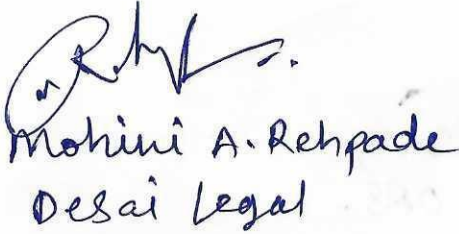 Mohini A. Rehpade
Desai Legal